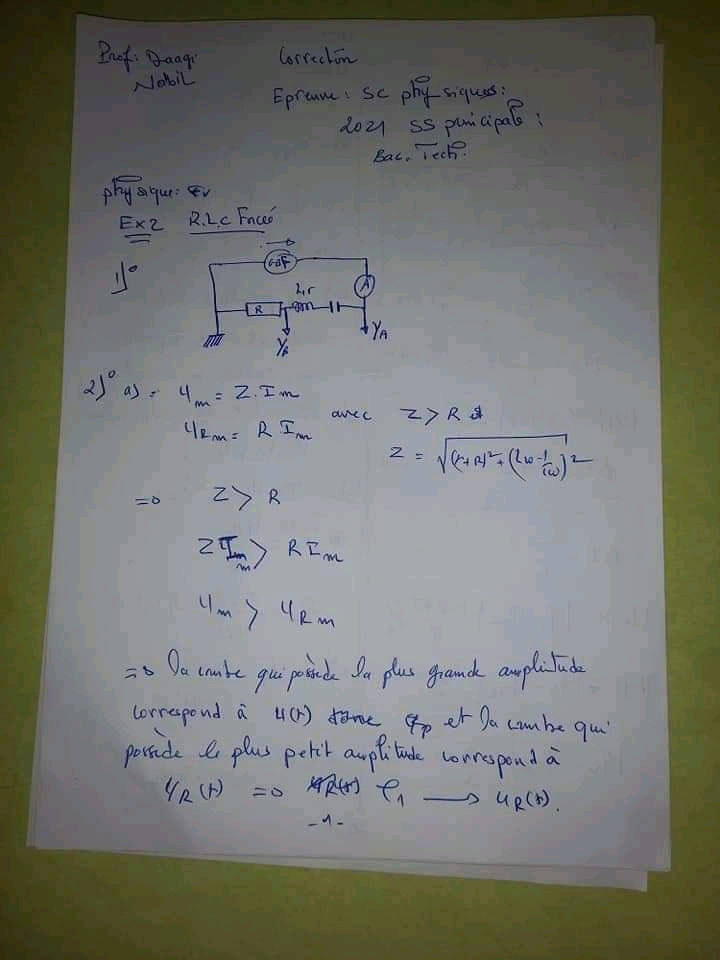 Prof: Daagi
Nabil
Correction
Epreuve: SC physiques:
2021 SS principale:
Bac. Tech.
physique:
Ex2 R.L.C Forcé
1)°
GBF
A
R
L,r
Y_B
Y_A
2)° a) U_m = Z.I_m
U_Rm = R I_m
avec Z > R
Z = √((r+R)²+(Lω-1/Cω)²
=> Z > R
Z I_m > R I_m
U_m > U_Rm
=> la courbe qui possède la plus grande amplitude
correspond à u(t) et la courbe qui
possède le plus petit amplitude correspond à
u_R(t) => C_1 → u_R(t).
-1-